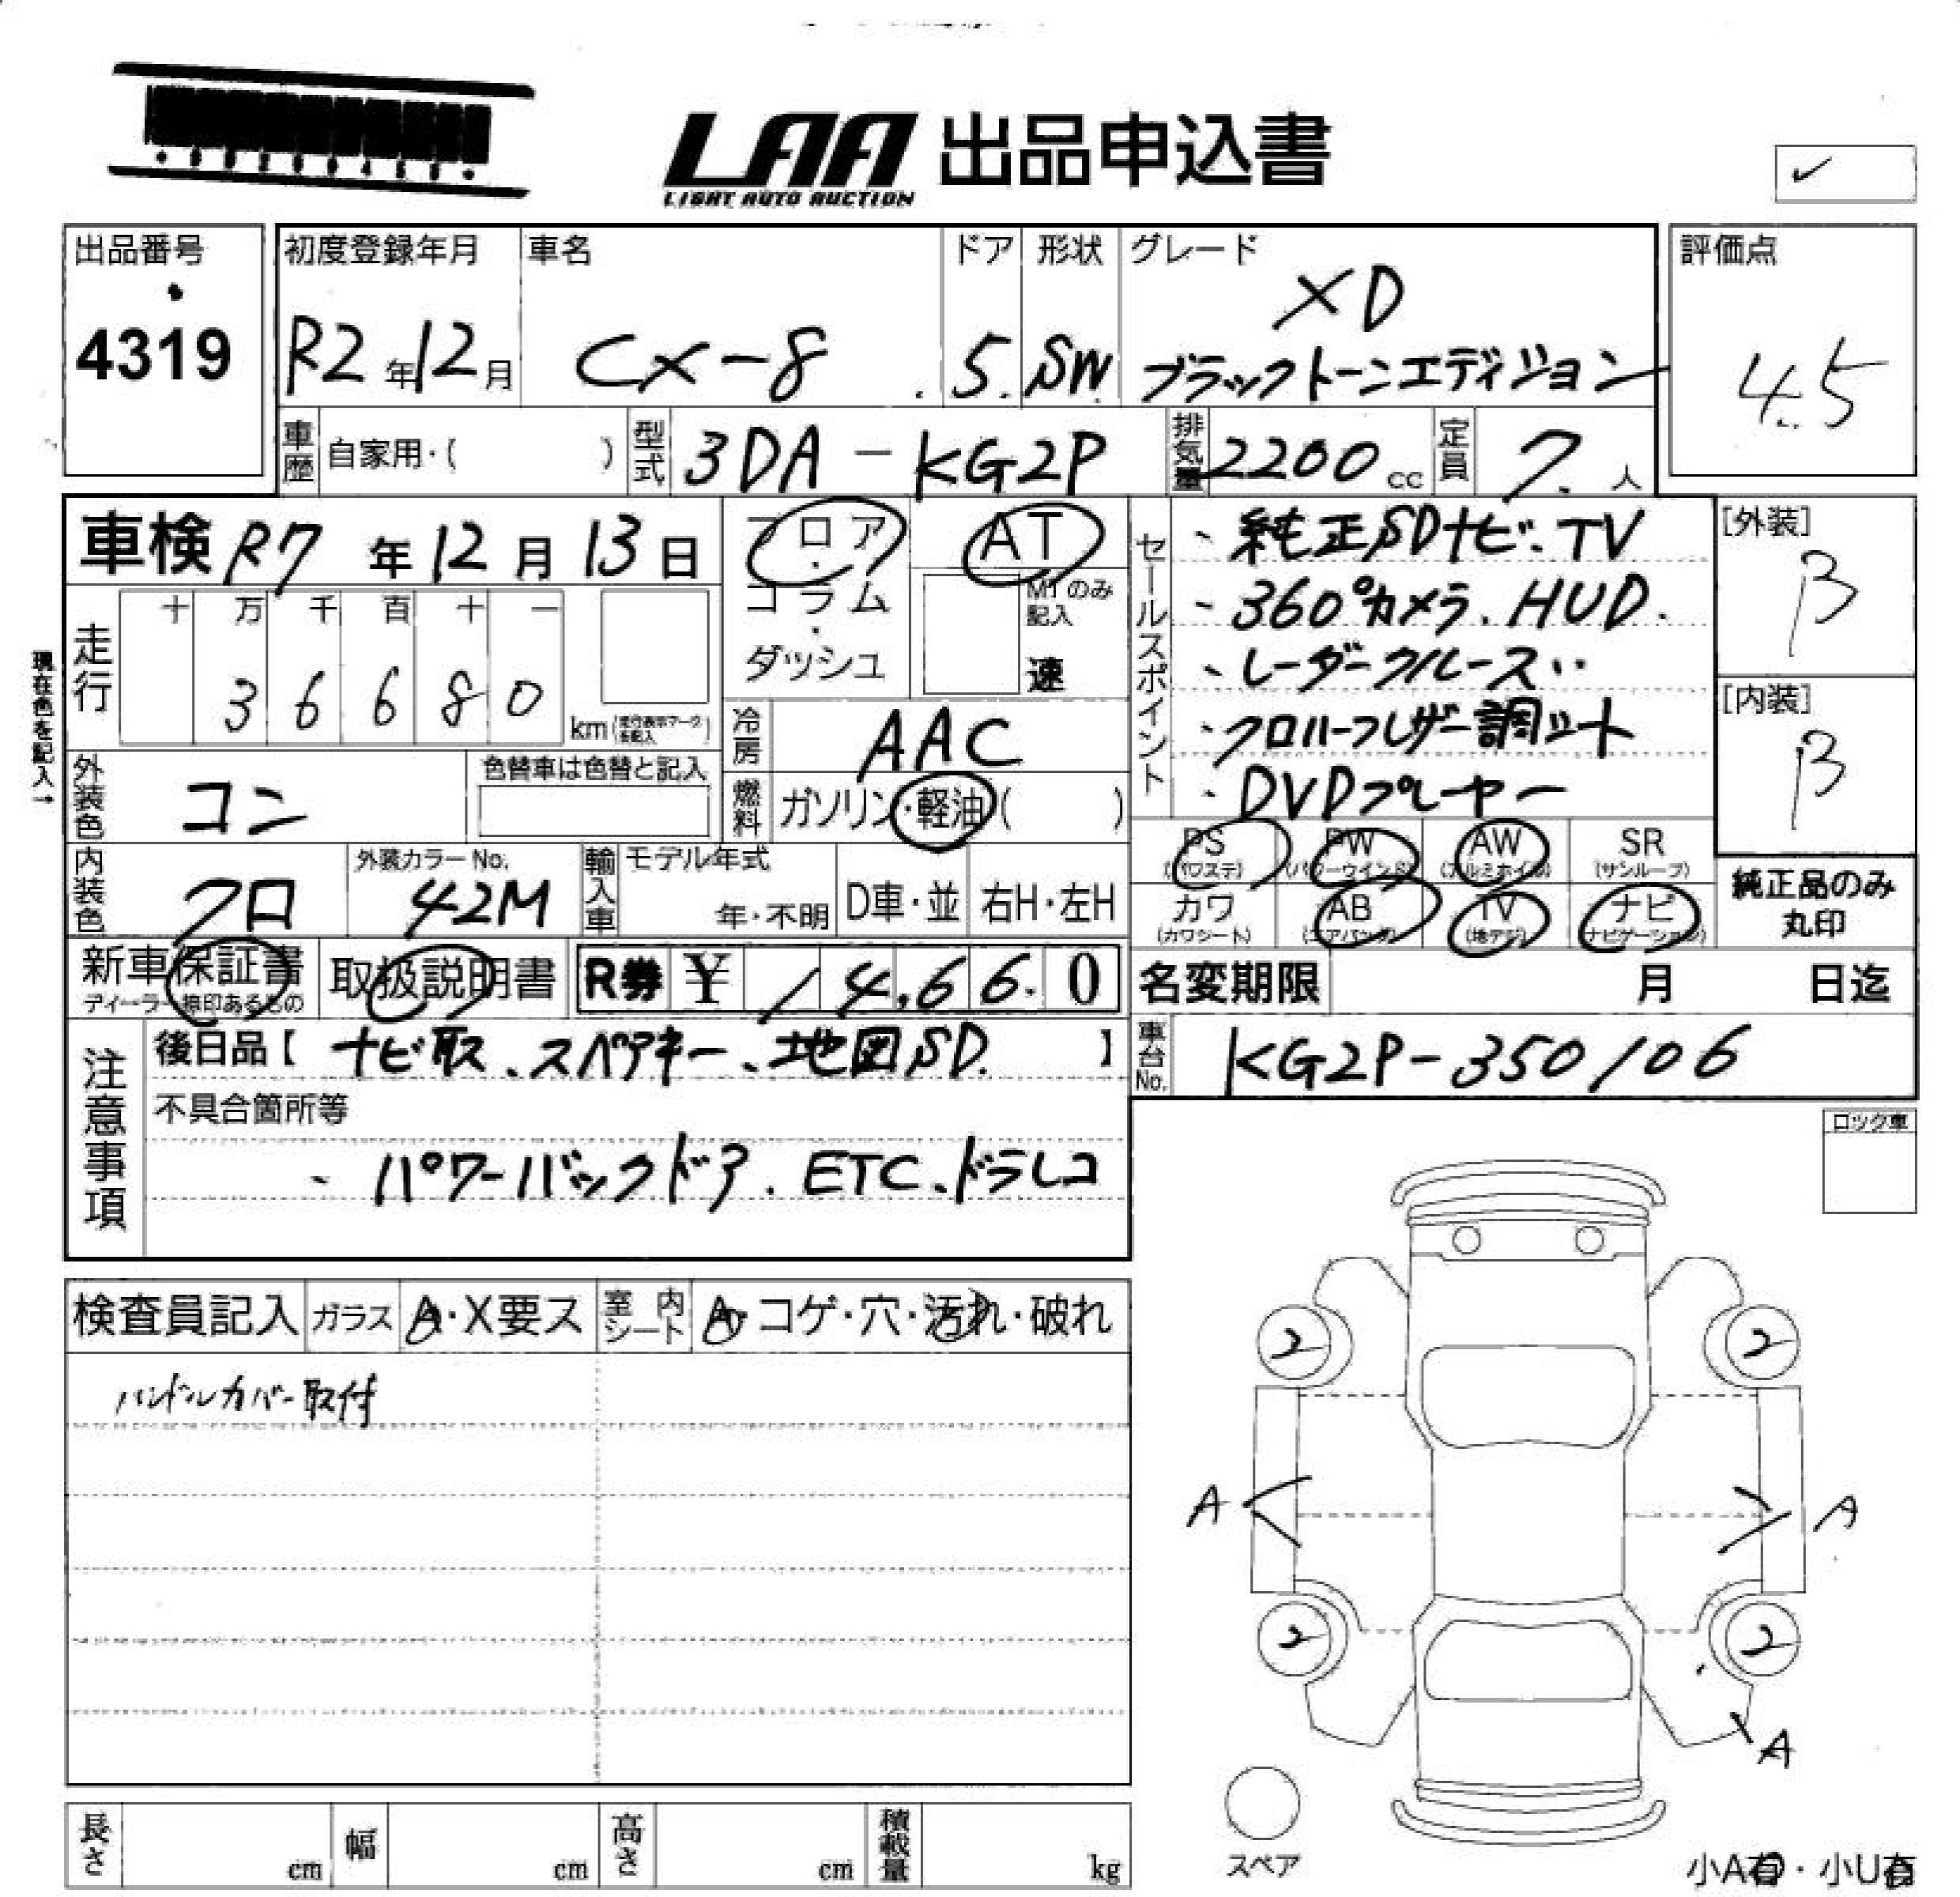 LAA 出品申込書
LIGHT AUTO AUCTION
✓
出品番号
4319
初度登録年月
R2年12月
車名
CX-8
ドア
5.
形状
SW
グレード
XD
ブラックトーンエディション
評価点
4.5
車歴 自家用・( )
型式 3DA-KG2P
排気量 2200cc
定員 7.人
車検 R7年12月13日
フロア・コラム・ダッシュ
AT
MTのみ記入
速
現在色を記入→
走行
十 万 千 百 十 一
3 6 6 8 0 km
(走行表示マークを記入)
冷房 AAC
燃料 ガソリン・軽油( )
外装色 コン
色替車は色替と記入
内装色 クロ
外装カラーNo. 42M
輸入車 モデル年式
年・不明
D車・並
右H・左H
セールスポイント
、純正SDナビ.TV
、360°カメラ.HUD.
、レーダークルーズ
・クロハーフレザー調シート
・DVDプレーヤー
[外装]
B
[内装]
B
PS (パワステ)
PW (パワーウインド)
AW (アルミホイル)
SR (サンルーフ)
カワ (カワシート)
AB (エアバック)
TV (地デジ)
ナビ (ナビゲーション)
純正品のみ
丸印
新車保証書
ディーラー捺印あるもの
取扱説明書
R券 ¥ 14,66.0
名変期限 月 日迄
車台No. KG2P-350106
注意事項
後日品【ナビ取、スペアキー、地図SD.】
不具合箇所等
、パワーバックドア.ETC、ドラレコ
ロック車
検査員記入
ガラス A・X要ス
室内シート A・コゲ・穴・汚れ・破れ
ハンドルカバー取付
2
2
A
A
2
2
A
スペア
小A有・小U有
長さ cm
幅 cm
高さ cm
積載量 kg